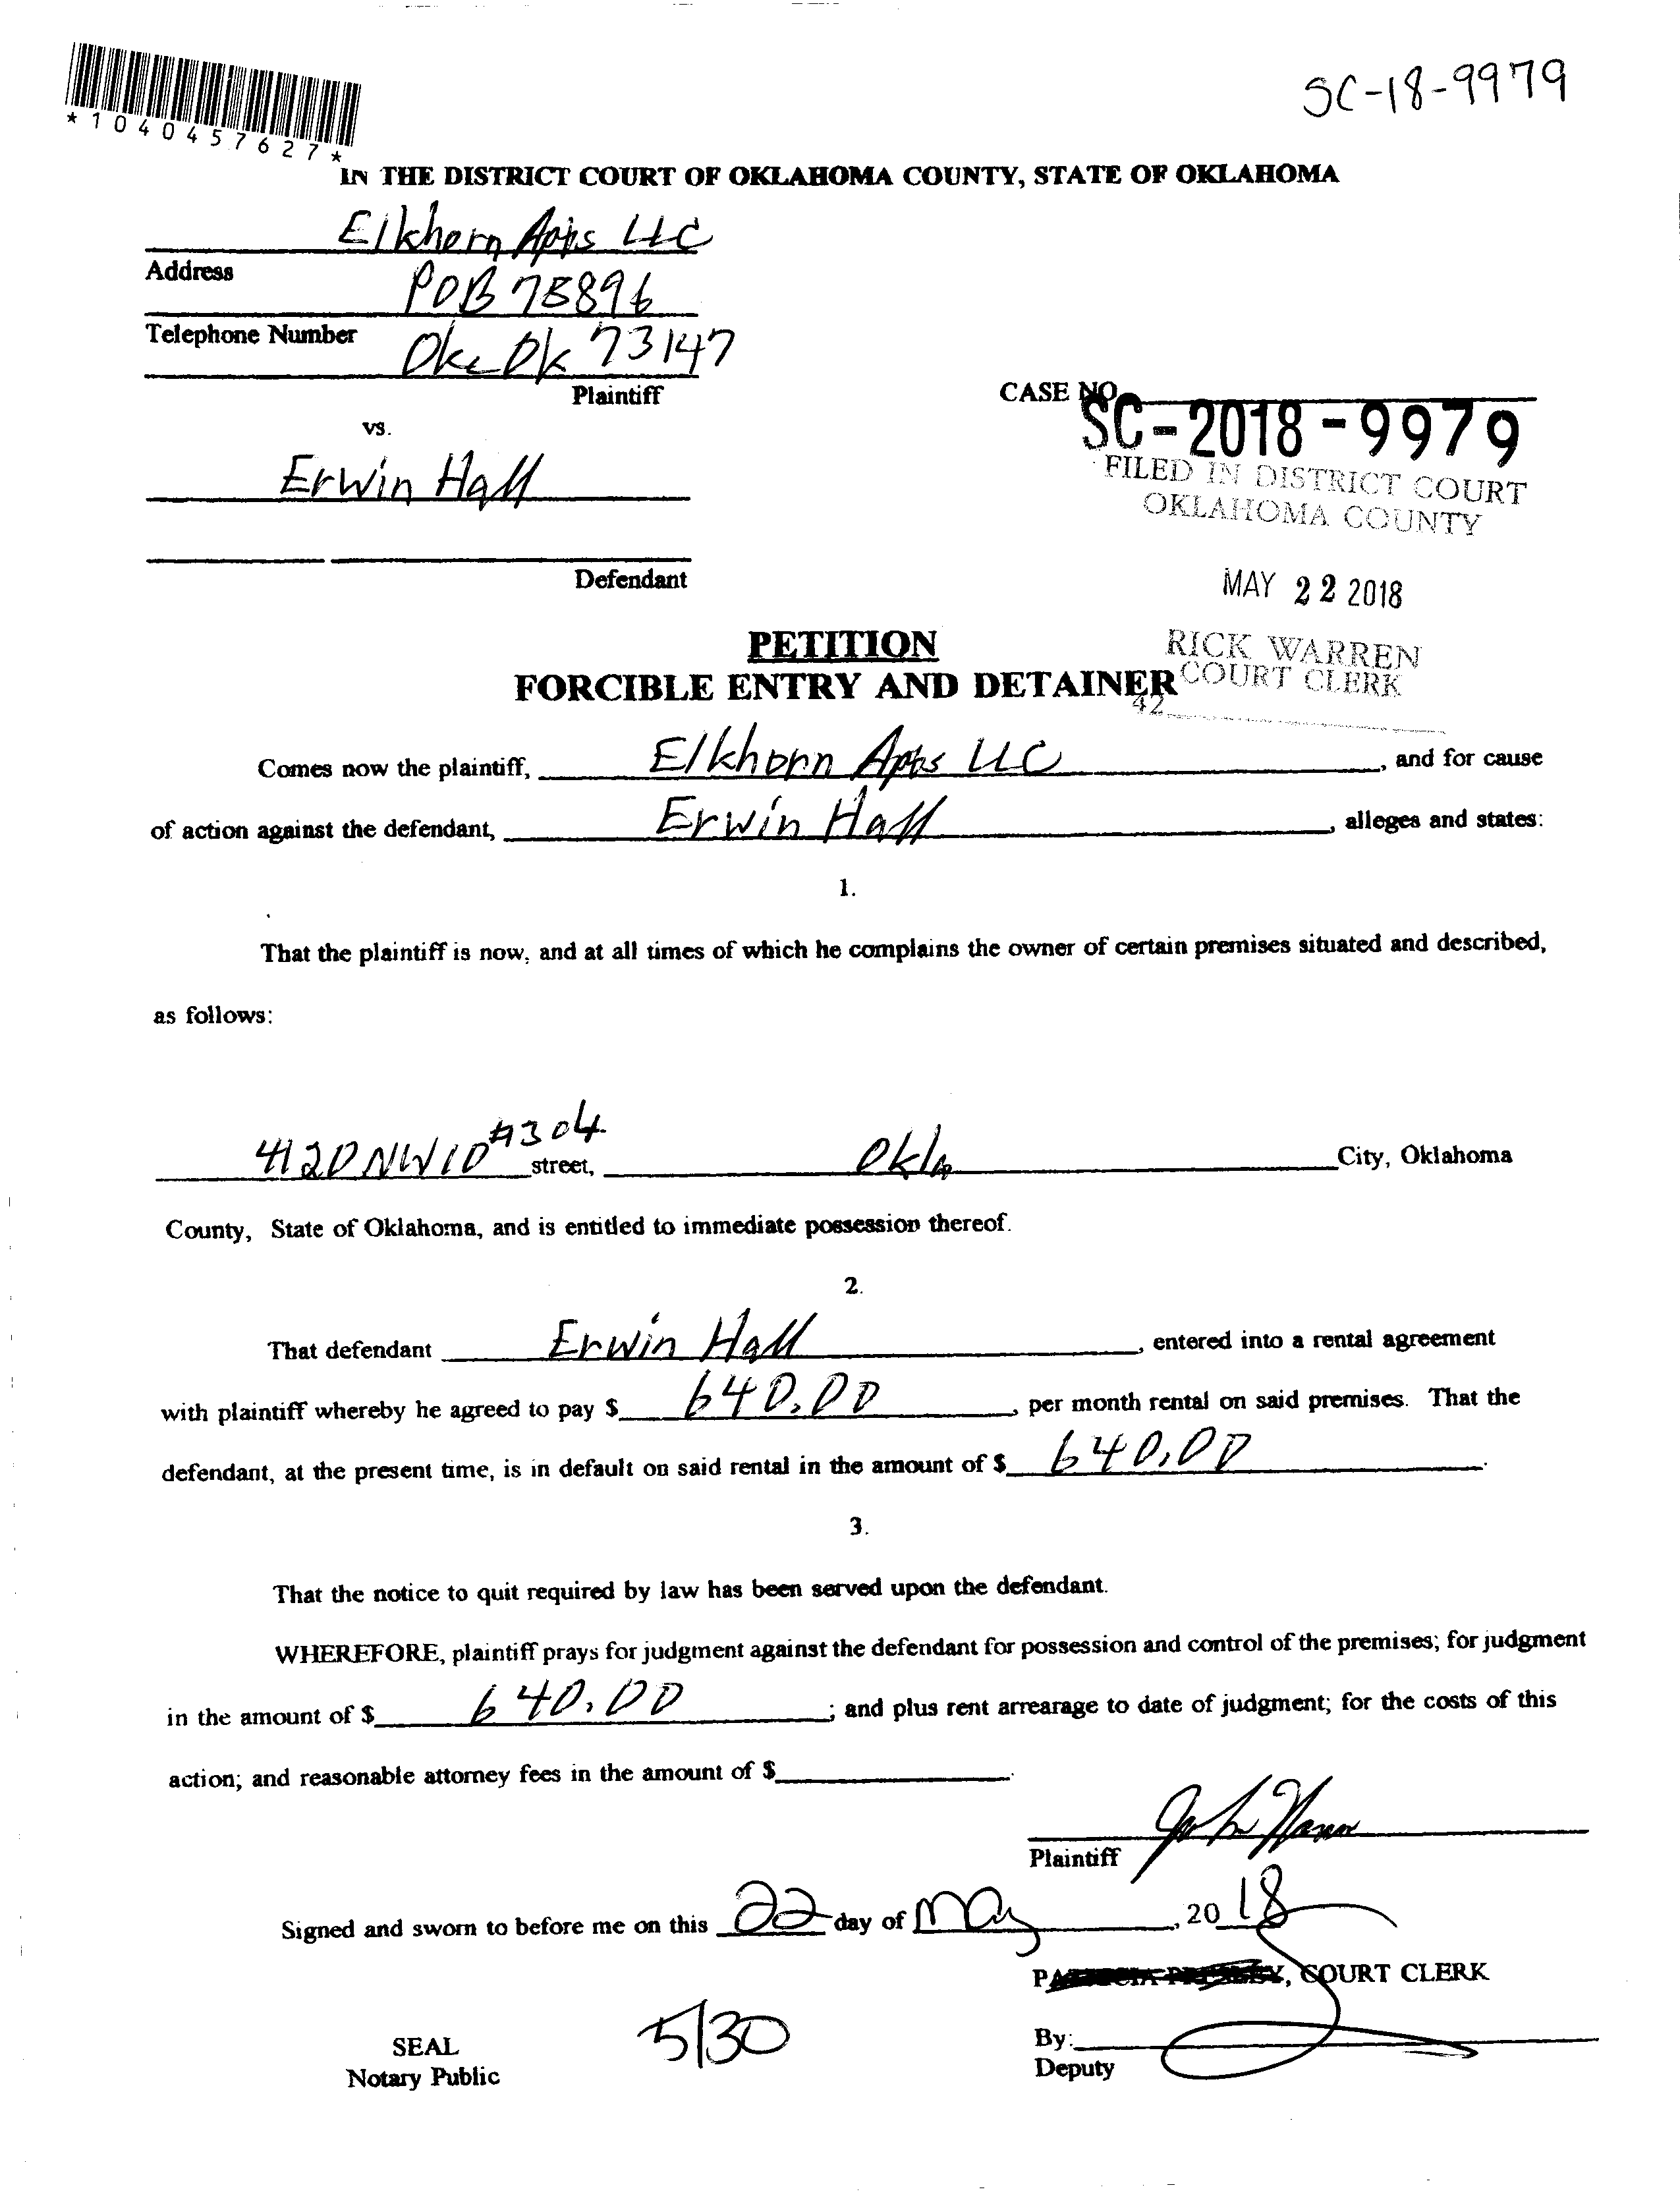 SC-18-9979
*1040457627*
IN THE DISTRICT COURT OF OKLAHOMA COUNTY, STATE OF OKLAHOMA
Elkhorn Apts LLC
Address
POB 75896
Telephone Number
Okc Ok 73147
Plaintiff
CASE NO.
SC-2018-9979
vs.
FILED IN DISTRICT COURT
OKLAHOMA COUNTY
Erwin Hall
Defendant
MAY 22 2018
PETITION
RICK WARREN
FORCIBLE ENTRY AND DETAINER
COURT CLERK
42
Comes now the plaintiff, Elkhorn Apts LLC, and for cause
of action against the defendant, Erwin Hall, alleges and states:
1.
That the plaintiff is now, and at all times of which he complains the owner of certain premises situated and described,
as follows:
4120 NW10 #304 street, Okla City, Oklahoma
County, State of Oklahoma, and is entitled to immediate possession thereof.
2.
That defendant Erwin Hall, entered into a rental agreement
with plaintiff whereby he agreed to pay $ 640.00, per month rental on said premises. That the
defendant, at the present time, is in default on said rental in the amount of $ 640.00.
3.
That the notice to quit required by law has been served upon the defendant.
WHEREFORE, plaintiff prays for judgment against the defendant for possession and control of the premises; for judgment
in the amount of $ 640.00; and plus rent arrearage to date of judgment; for the costs of this
action; and reasonable attorney fees in the amount of $
Plaintiff
Signed and sworn to before me on this 22 day of May, 2018
, COURT CLERK
5/30
By:
SEAL
Deputy
Notary Public